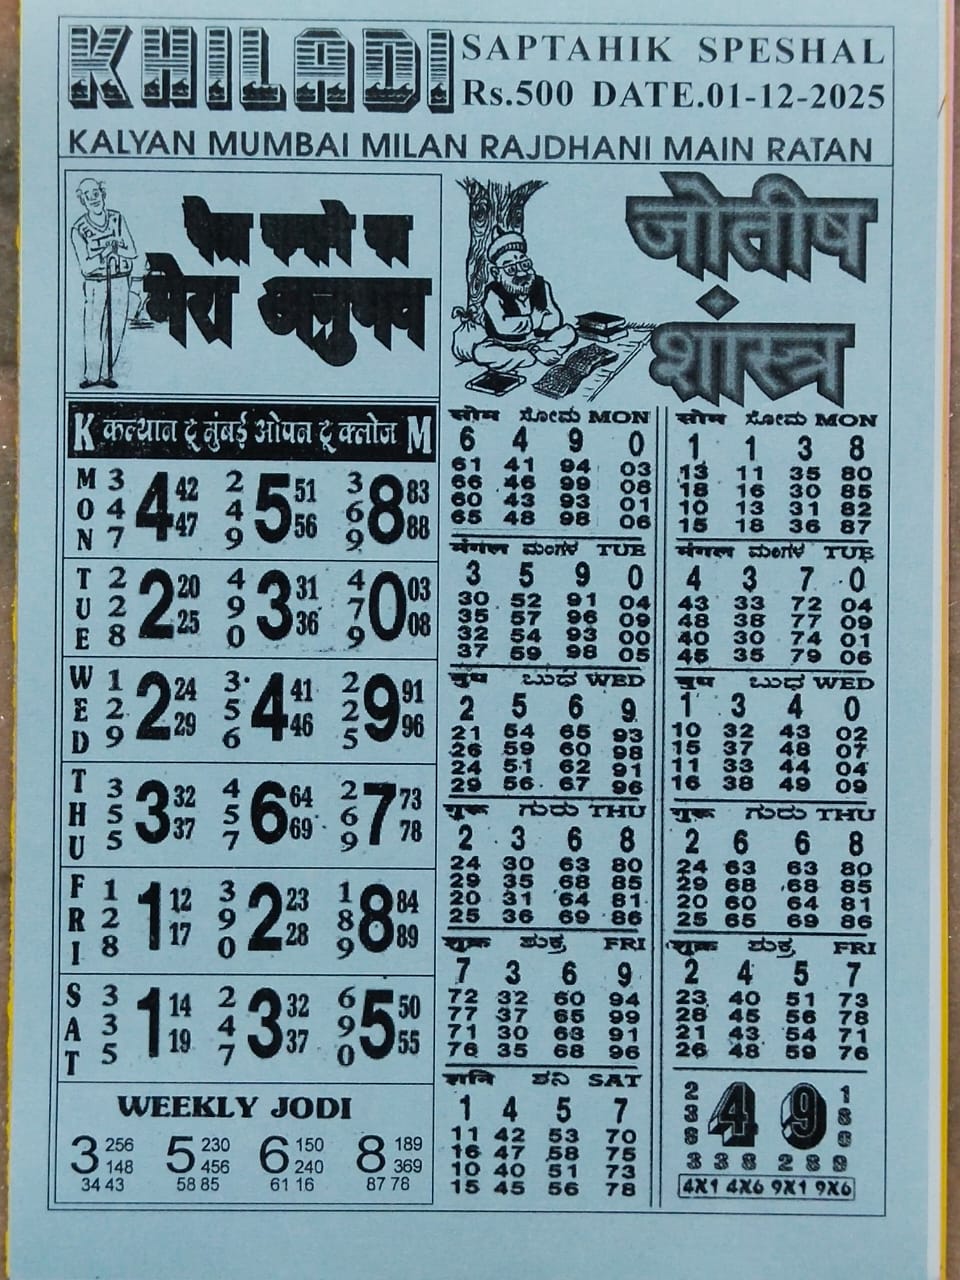 KHILADI
SAPTAHIK SPESHAL
Rs.500 DATE.01-12-2025
KALYAN MUMBAI MILAN RAJDHANI MAIN RATAN
पैसा कमाने का
मेरा अनुभव
जोतीष
शांस्त्र
K कल्यान टू मुंबई ओपन टू क्लोज M
MON
347 4 42 47
249 5 51 56
369 8 83 88
TUE
228 2 20 25
490 3 31 36
479 0 03 08
WED
129 2 24 29
356 4 41 46
225 9 91 96
THU
355 3 32 37
457 6 64 69
269 7 73 78
FRI
128 1 12 17
390 2 23 28
189 8 84 89
SAT
335 1 14 19
247 3 32 37
690 5 50 55
WEEKLY JODI
3 256 148 34 43
5 230 456 58 85
6 150 240 61 16
8 189 369 87 78
सोम ಸೋಮ MON
6 4 9 0
61 41 94 03
66 46 99 08
60 43 93 01
65 48 98 06
मंगल ಮಂಗಳ TUE
3 5 9 0
30 52 91 04
35 57 96 09
32 54 93 00
37 59 98 05
बुध ಬುಧ WED
2 5 6 9
21 54 65 93
26 59 60 98
24 51 62 91
29 56 67 96
गुरू ಗುರು THU
2 3 6 8
24 30 63 80
29 35 68 85
20 31 64 81
25 36 69 86
शुक्र ಶುಕ್ರ FRI
7 3 6 9
72 32 60 94
77 37 65 99
71 30 63 91
76 35 68 96
शनि ಶನಿ SAT
1 4 5 7
11 42 53 70
16 47 58 75
10 40 51 73
15 45 56 78
सोम ಸೋಮ MON
1 1 3 8
13 11 35 80
18 16 30 85
10 13 31 82
15 18 36 87
मंगल ಮಂಗಳ TUE
4 3 7 0
43 33 72 04
48 38 77 09
40 30 74 01
45 35 79 06
बुध ಬುಧ WED
1 3 4 0
10 32 43 02
15 37 48 07
11 33 44 04
16 38 49 09
गुरू ಗುರು THU
2 6 6 8
24 63 63 80
29 68 68 85
20 60 64 81
25 65 69 86
शुक्र ಶುಕ್ರ FRI
2 4 5 7
23 40 51 73
28 45 56 78
21 43 54 71
26 48 59 76
4 9
4X1 4X6 9X1 9X6